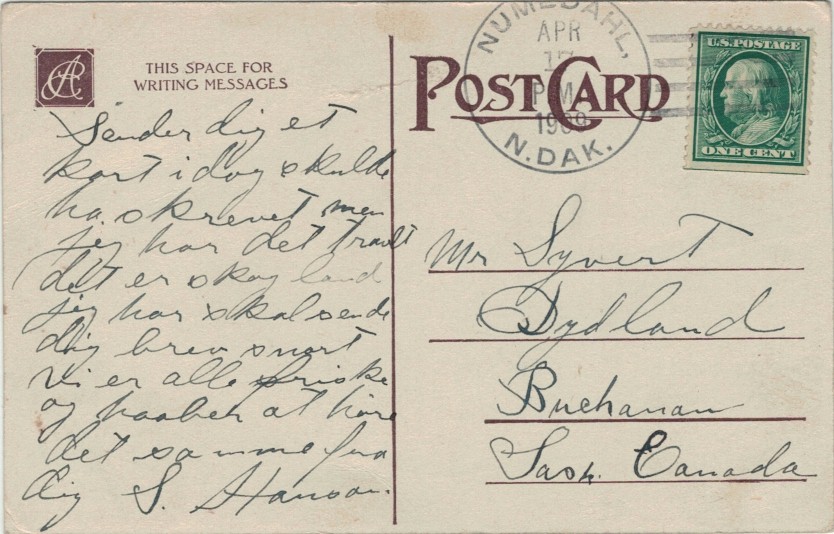 THIS SPACE FOR
WRITING MESSAGES
Sender dig et
kort i dag skulde
ha skrevet men
jeg har det travlt
det er skog land
jeg har skal sende
dig brev snart
vi er alle friske
og haaber at høre
det samme fra
dig S. Hanson.
POST CARD
NUMEDAHL,
APR
17
PM
1909
N. DAK.
U.S. POSTAGE
ONE CENT
Mr Syvert
Dydland
Buchanan
Sask. Canada